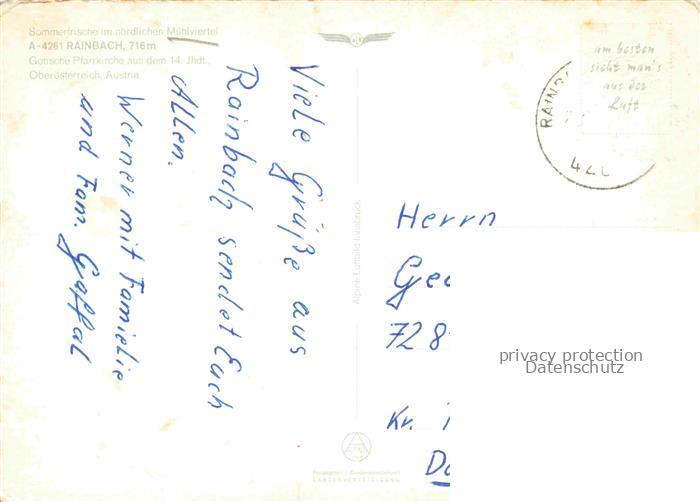 Sommerfrische im nördlichen Mühlviertel
A-4261 RAINBACH, 716m
Gotische Pfarrkirche aus dem 14. Jhdt.,
Oberösterreich, Austria
Viele Grüße aus
Rainbach sendet Euch
Allen.
Werner mit Familie
und Fam.
Alpine Luftbild Innsbruck
am besten
sieht man's
aus der
Luft
RAINB
42
Herrn
Geo
728
privacy protection
Datenschutz
Kr.
LANDESVERTEIDIGUNG